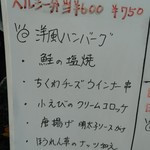 ヘルシー弁当¥600 ¥750
洋風ハンバーグ
・鮭の塩焼
・ちくわチーズウインナー串
・小えびのクリームコロッケ
・唐揚げ 明太子ソースかけ
・ほうれん草のナッツ和え